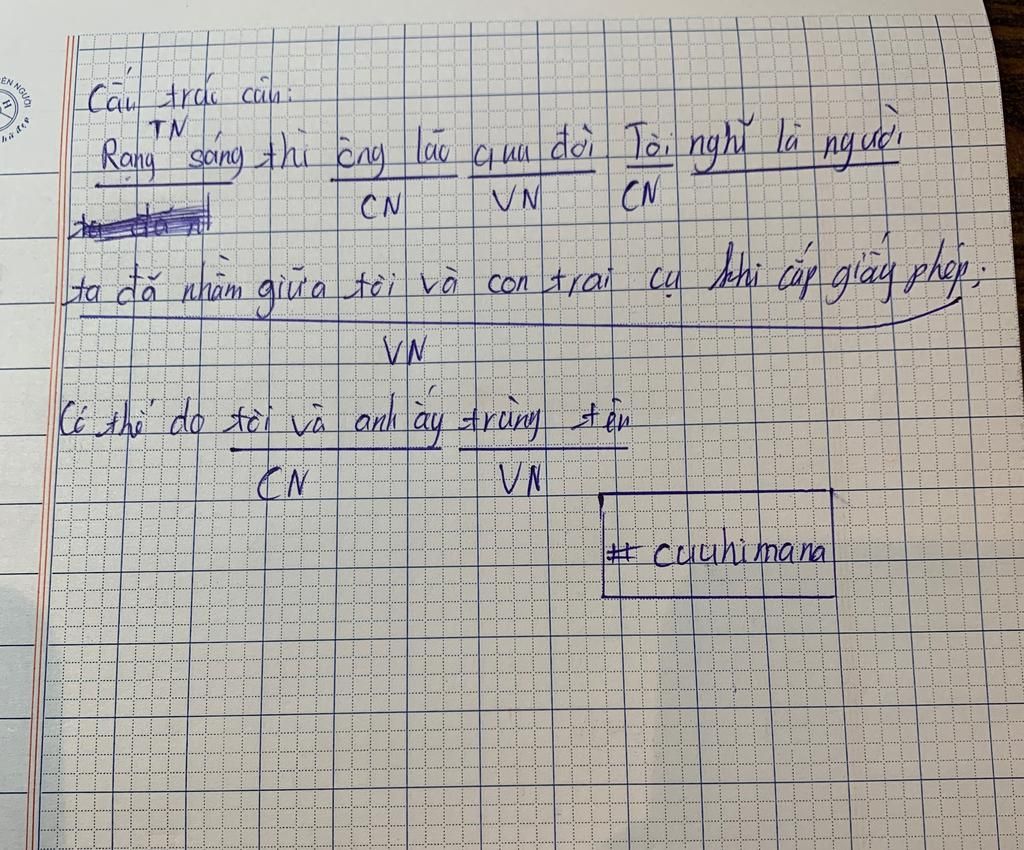 ÊN NGƯỜI
H
Cấu trúc câu:
TN
Rạng sáng thì ông lão qua đời Tôi nghĩ là người
CN VN CN
ta đã nhầm giữa tôi và con trai cụ khi cấp giấy phép.
VN
Có thể do tôi và anh ấy trùng tên
CN VN
# cuuhimana